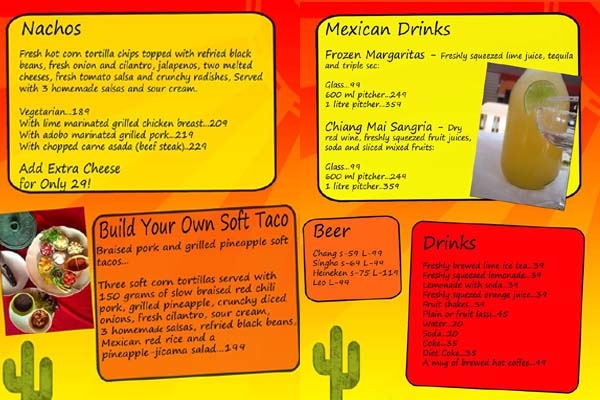 Nachos
Fresh hot corn tortilla chips topped with refried black
beans, fresh onion and cilantro, jalapenos, two melted
cheeses, fresh tomato salsa and crunchy radishes, Served
with 3 homemade salsas and sour cream.
Vegetarian...189
With lime marinated grilled chicken breast...209
With adobo marinated grilled pork...219
With chopped carne asada (beef steak)..229
Add Extra Cheese
for Only 29!
Build Your Own Soft Taco
Braised pork and grilled pineapple soft
tacos...
Three soft corn tortillas served with
150 grams of slow braised red chili
pork, grilled pineapple, crunchy diced
onions, fresh cilantro, sour cream,
3 homemade salsas, refried black beans,
Mexican red rice and a
pineapple-jicama salad...199
Mexican Drinks
Frozen Margaritas - Freshly squeezed lime juice, tequila
and triple sec:
Glass..99
600 ml pitcher...249
1 litre pitcher...359
Chiang Mai Sangria - Dry
red wine, freshly squeezed fruit juices,
soda and sliced mixed fruits:
Glass...99
600 ml pitcher...249
1 litre pitcher...359
Beer
Chang S-59 L-99
Singha S-69 L-99
Heineken S-75 L-119
Leo L-99
Drinks
Freshly brewed lime ice tea...39
Freshly squeezed lemonade...39
Lemonade with soda...39
Freshly squeezed orange juice...39
Fruit shakes...39
Plain or fruit lassi...45
Water...20
Soda...20
Coke...35
Diet Coke...35
A mug of brewed hot coffee...49